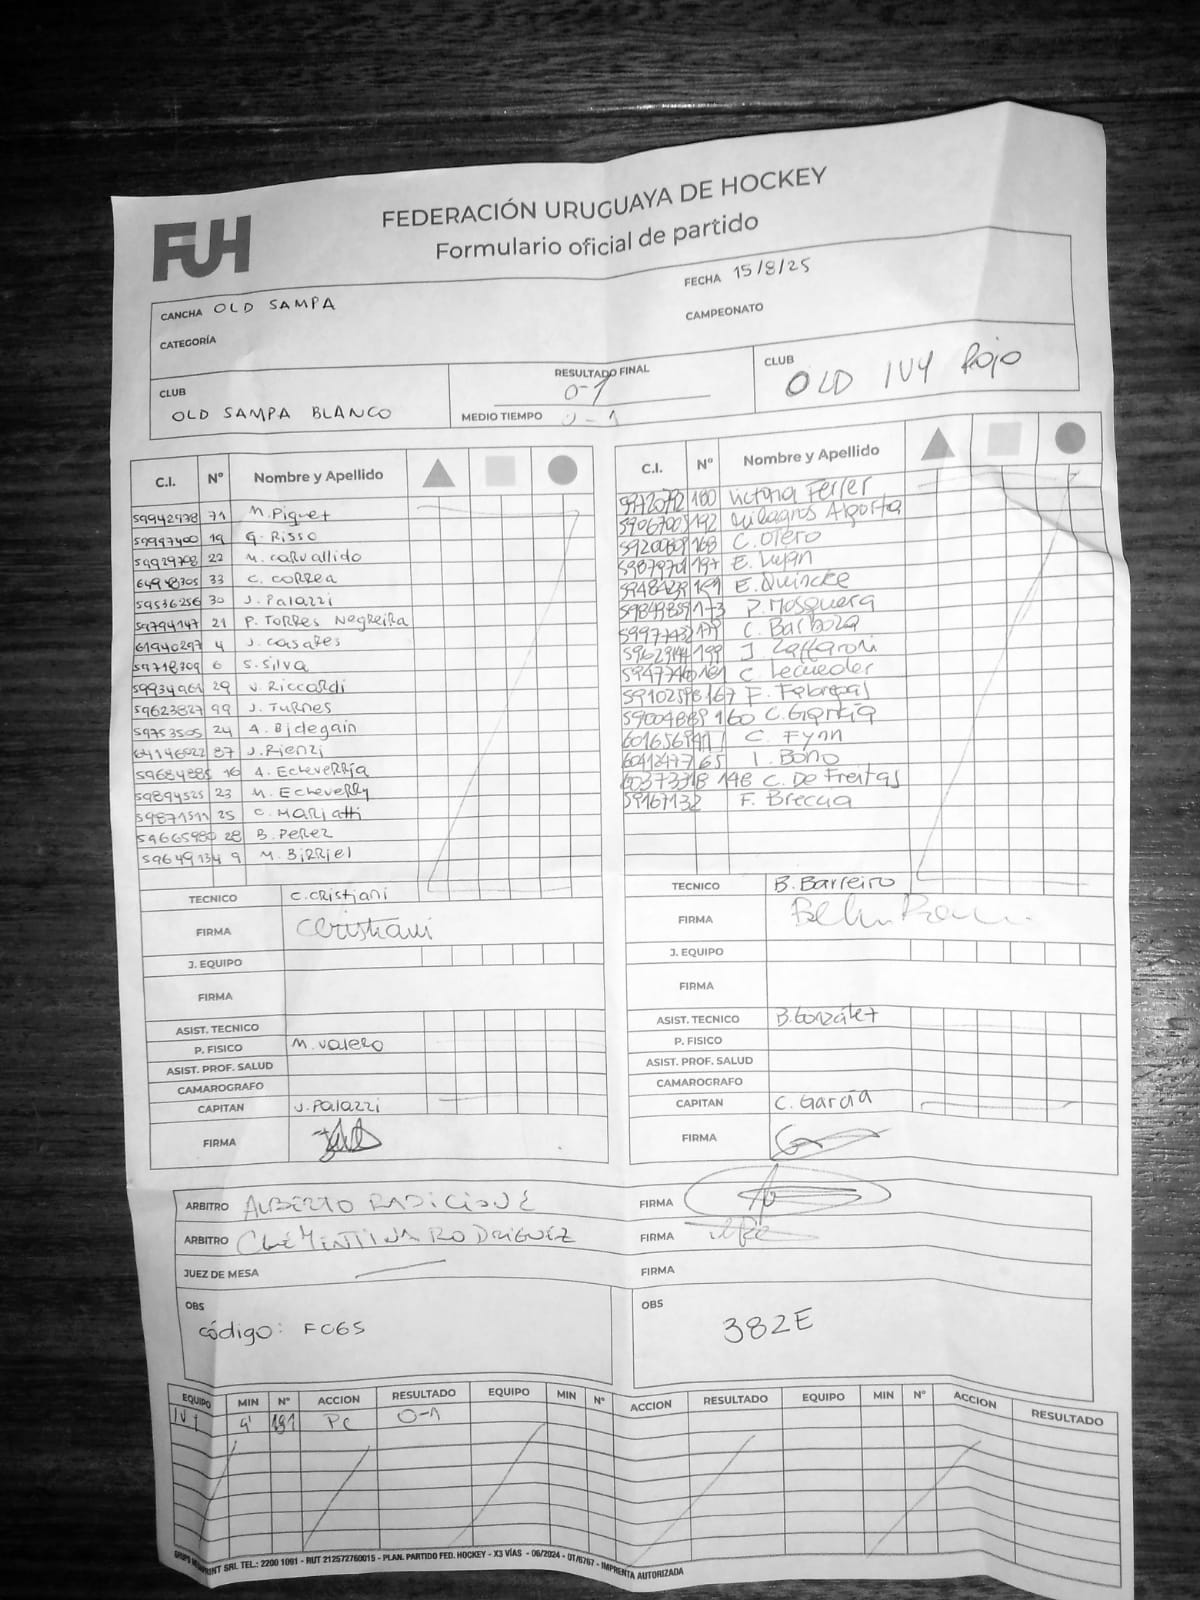 FUH
FEDERACIÓN URUGUAYA DE HOCKEY
Formulario oficial de partido
CANCHA OLD SAMPA
FECHA 15/8/25
CATEGORÍA
CAMPEONATO
CLUB
OLD SAMPA BLANCO
RESULTADO FINAL
0-1
MEDIO TIEMPO 0-1
CLUB
OLD IVY Rojo
C.I. Nº Nombre y Apellido
59942978 71 M. Piquet
59997400 19 G. Risso
59929708 22 M. Carvallido
64948305 33 C. Correa
59536256 30 J. Palazzi
59794147 21 P. Torres Negreira
61940297 4 J. Casares
59718709 6 S. Silva
59934961 29 V. Riccardi
59623827 99 J. Turnes
59753505 24 A. Bidegain
64146022 87 J. Rienzi
59684885 16 A. Echeverría
59894525 23 M. Echeverry
59871511 25 C. Mariatti
59665980 28 B. Perez
59649134 9 M. Birriel
TECNICO C. Cristiani
FIRMA CCristiani
J. EQUIPO
FIRMA
ASIST. TECNICO
P. FISICO M. Valero
ASIST. PROF. SALUD
CAMAROGRAFO
CAPITAN J. Palazzi
FIRMA
C.I. Nº Nombre y Apellido
180 Victoria Ferrer
192 Milagros Algorta
168 C. Otero
197 E. Lujan
E. Quincke
173 P. Mosquera
C. Barboza
199 J Zaffaroni
C. Lecueder
59102598 167 F. Fabregas
59004889 160 C. García
C. Fynn
60412477 65 I. Bono
60373318 148 C. De Freitas
59167132 F. Breccia
TECNICO B. Barreiro
FIRMA
J. EQUIPO
FIRMA
ASIST. TECNICO B. González
P. FISICO
ASIST. PROF. SALUD
CAMAROGRAFO
CAPITAN C. García
FIRMA
ARBITRO ALBERTO FIRMA
ARBITRO RODRIGUEZ FIRMA
JUEZ DE MESA FIRMA
OBS
código: FC65
OBS
382E
EQUIPO MIN Nº ACCION RESULTADO EQUIPO MIN Nº ACCION RESULTADO EQUIPO MIN Nº ACCION RESULTADO
IVY 9' 191 PC 0-1
SRL TEL.: 2200 1091 - RUT 212572760015 - PLAN. PARTIDO FED. HOCKEY - X3 VÍAS - 06/2024 - OT/6767 - IMPRENTA AUTORIZADA